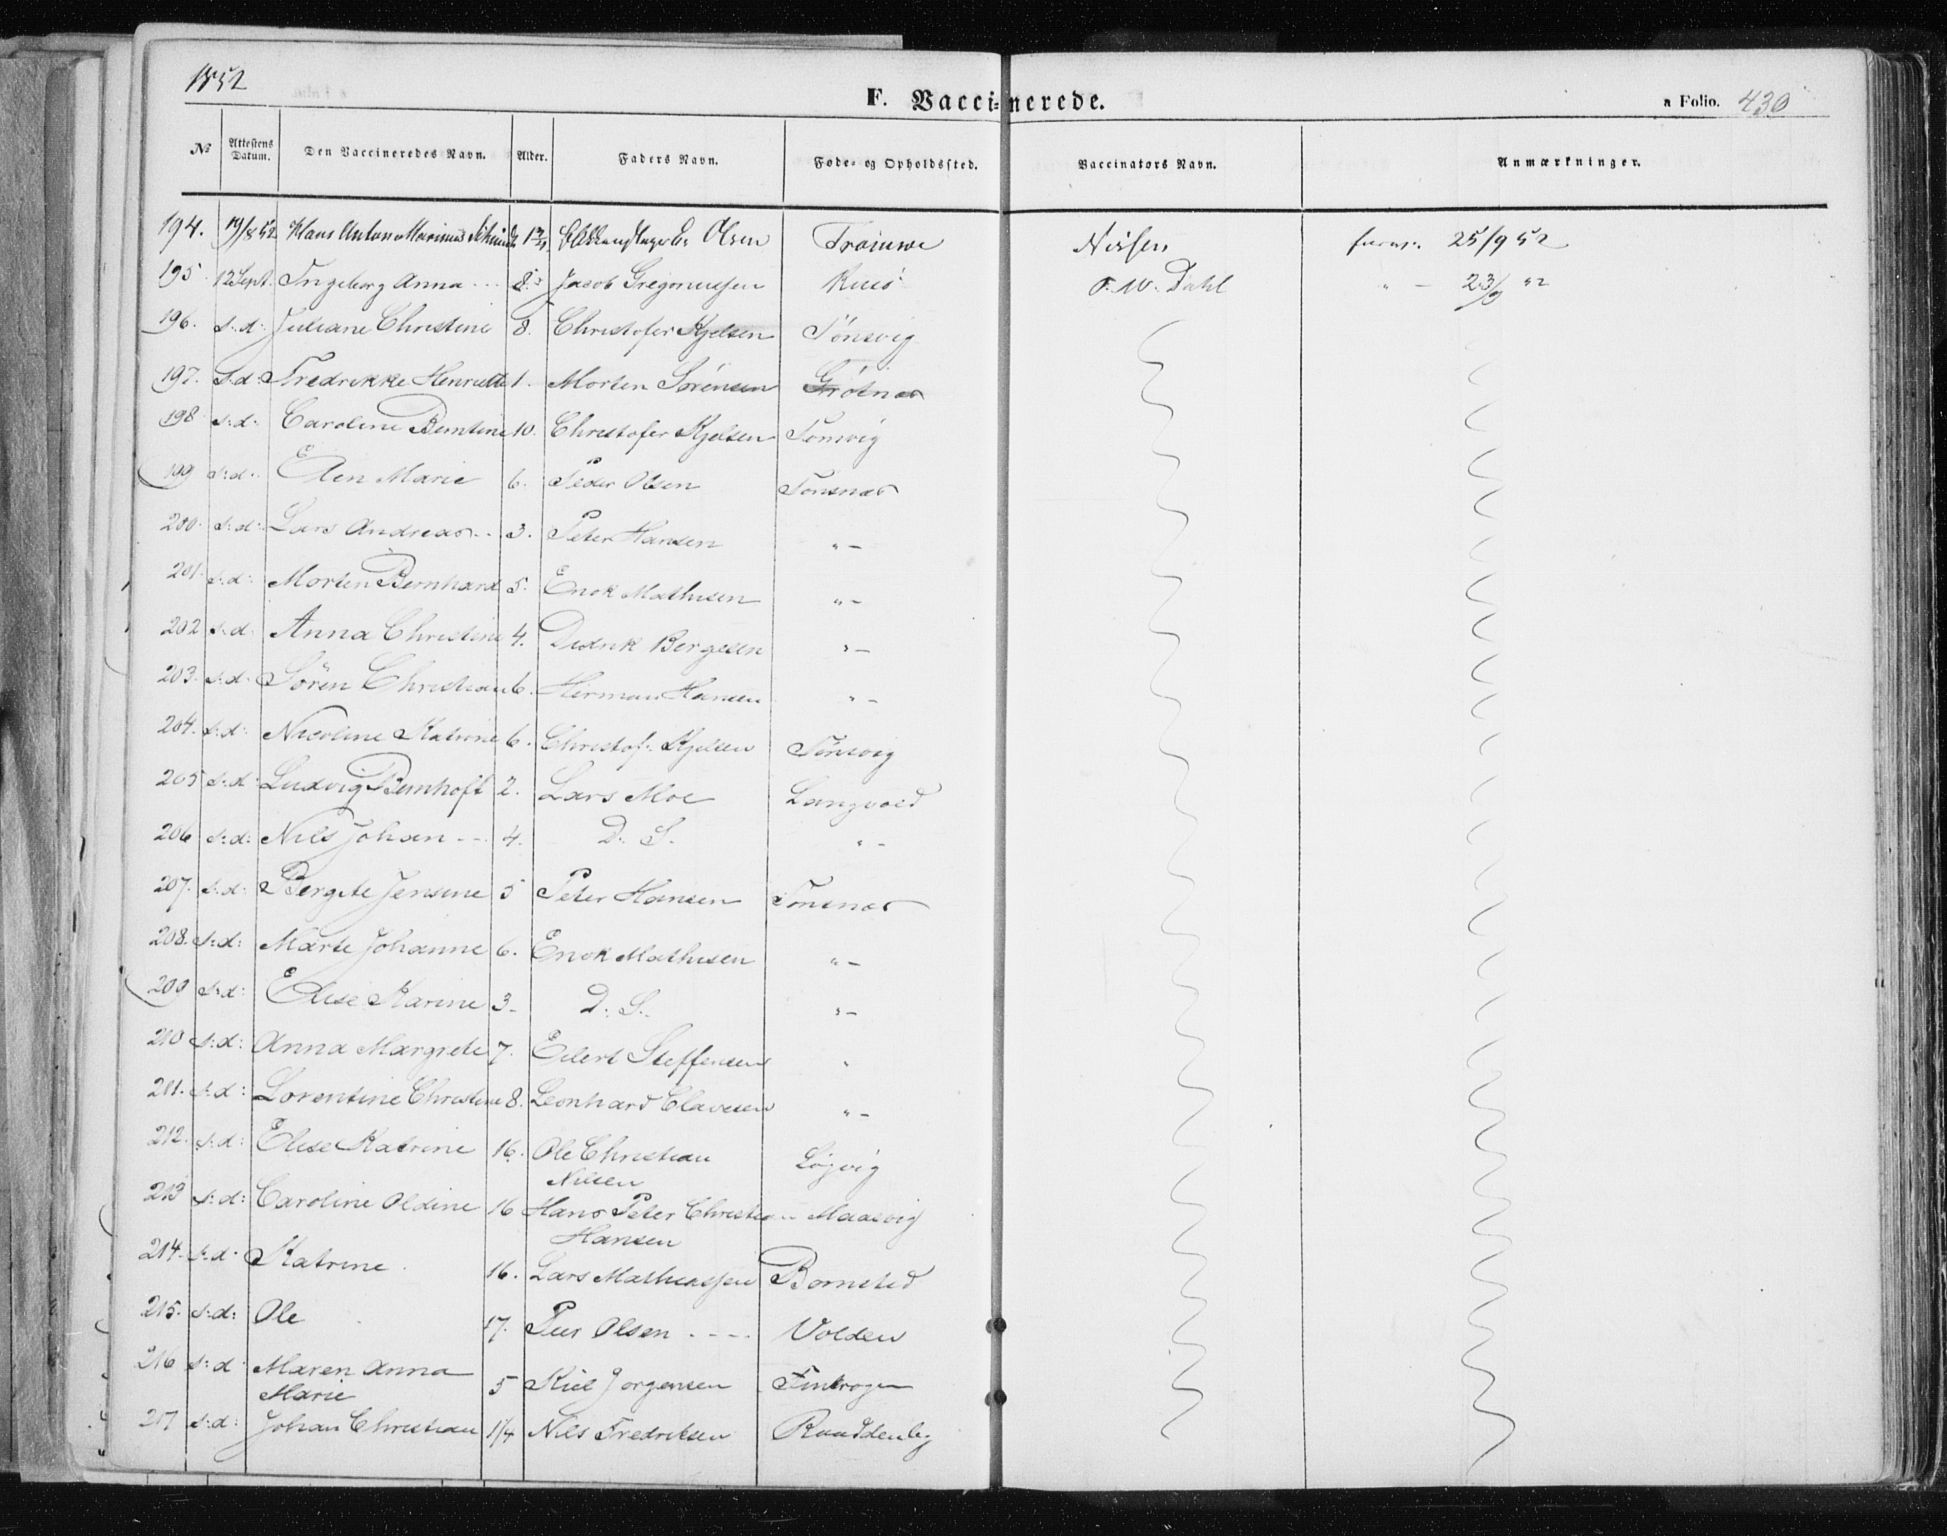 1852
F. Vaccinerede.
a Folio. 430
No Attestens Datum. Den Vaccineredes Navn. Alder. Faders Navn. Føde- og Opholdssted. Vaccinators Navn. Anmærkninger.
194. 19/8 52 Hans Anton Marinus Olsen Tromsøe 25/9 52
195 12 Sept. Ingeborg Anna 8 Jacob O. W. Dahl " — 23/9 52
196. s:d: Juliane Christine 8. Christofer Kjelsen Tönsvig
197. s:d: Fredrikke Henriette 1. Morten Sörensen Grötnæs
198 s:d: Caroline Berntine 10. Christofer Kjelsen Tönsvig
199 s:d: Elen Marie 6. Peder Olsen Tönsnæs
200. s:d: Lars Andreas 3. Peter Hansen " —
201. s:d: Morten Bernhard 5. Enok Mathisen " —
202 s:d: Anna Christine 4. Didrik Bergesen " —
203. s:d: Sören Christian 6. Herman Hansen " —
204. s:d: Nicoline Katrine 6. Christof: Kjelsen Tönsvig
205 s:d: Ludvig Bernhoft 2. Lars Moe Langvold
206 s:d: Nils Johan 4. D. S. " —
207. s:d: Bergete Jensine 5 Peter Hansen Tönsnæs
208. s:d: Marte Johanne 6. Enok Mathisen " —
209 s:d: Elise Karine 3. D. S. " —
210 s:d: Anna Margrete 7. Eilert Steffensen "
211. s:d: Lorentine Christine 8. Leonhard Clavesen " —
212. s:d: Elise Katrine 16. Ole Christian Lögvig
Nilsen
213 s:d: Caroline Oldine 16 Hans Peter Christian Maasvig
Hansen
214. s:d. Katrine 16. Lars Mathiassen
215. s:d: Ole 17. Peer Olsen Volden
216 s:d Maren Anna 5 Kiel Jörgensen Finkrogen
Marie
217 s:d: Johan Christian 1/4 Nils Fredriksen